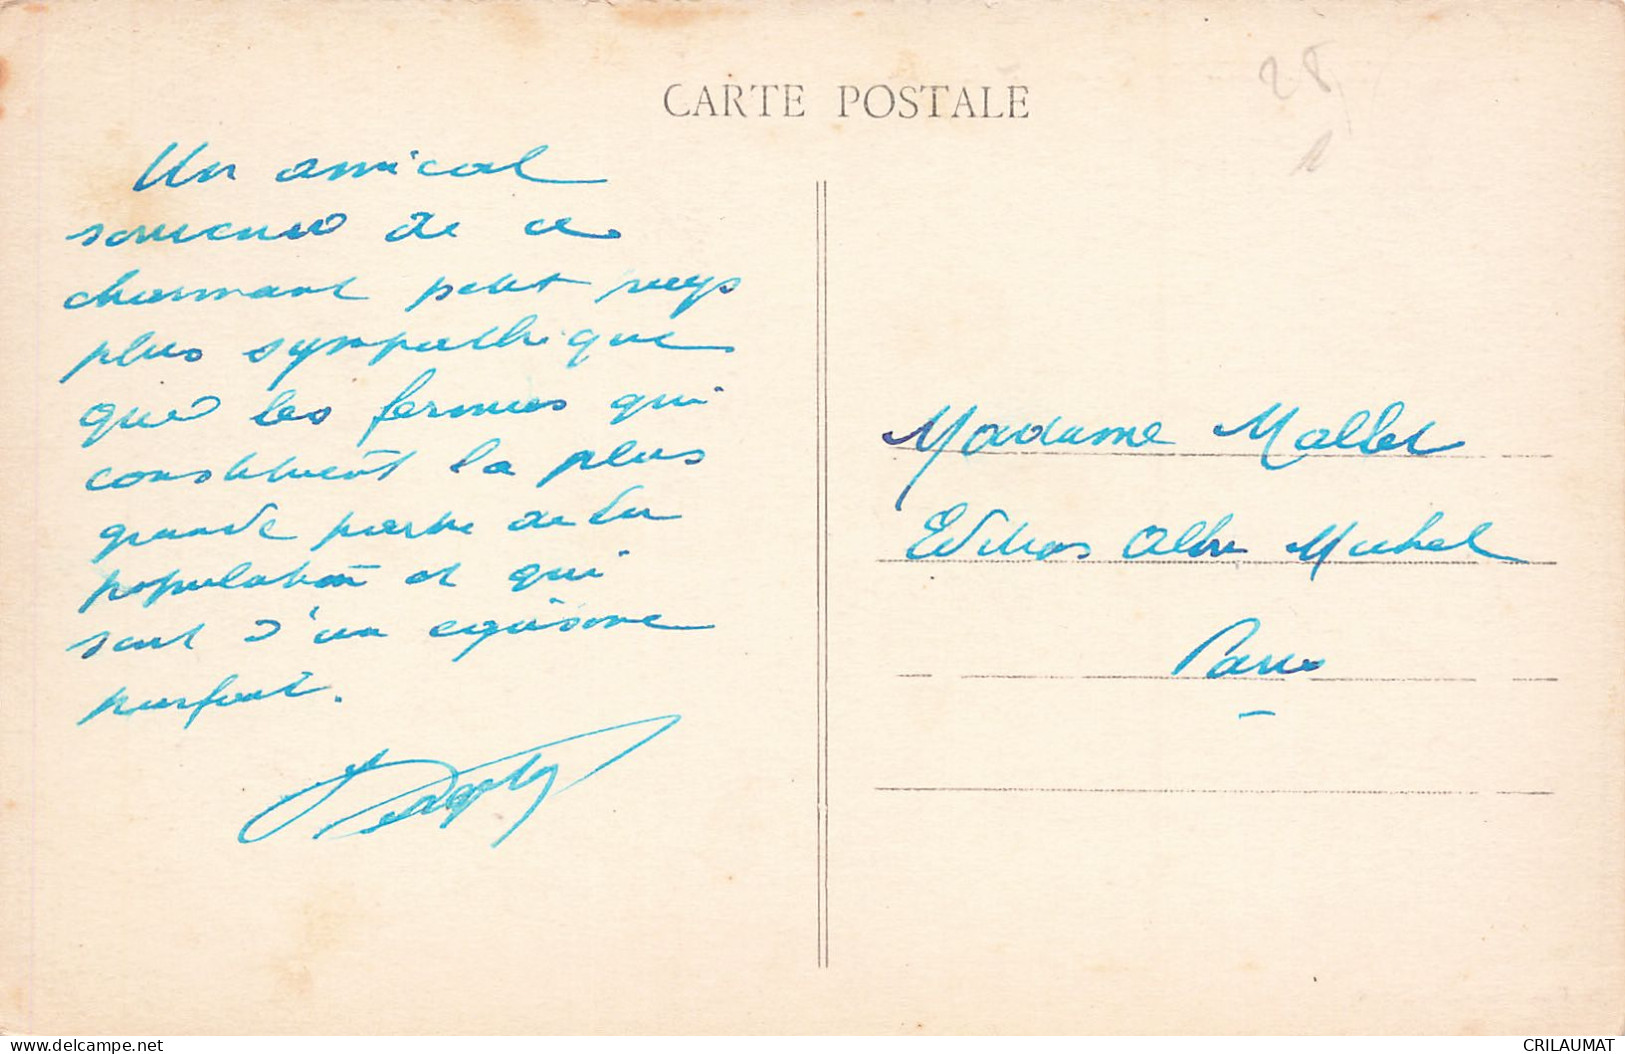 CARTE POSTALE
28
1
Un amical
souvenir de ce
charmant petit pays
plus sympathique
que les fermes qui
constituent la plus
grande partie de la
population et qui
sont d'un égoïsme
parfait.
Madame Mallet
Editions Albin Michel
Paris
delcampe.net
CRILAUMAT